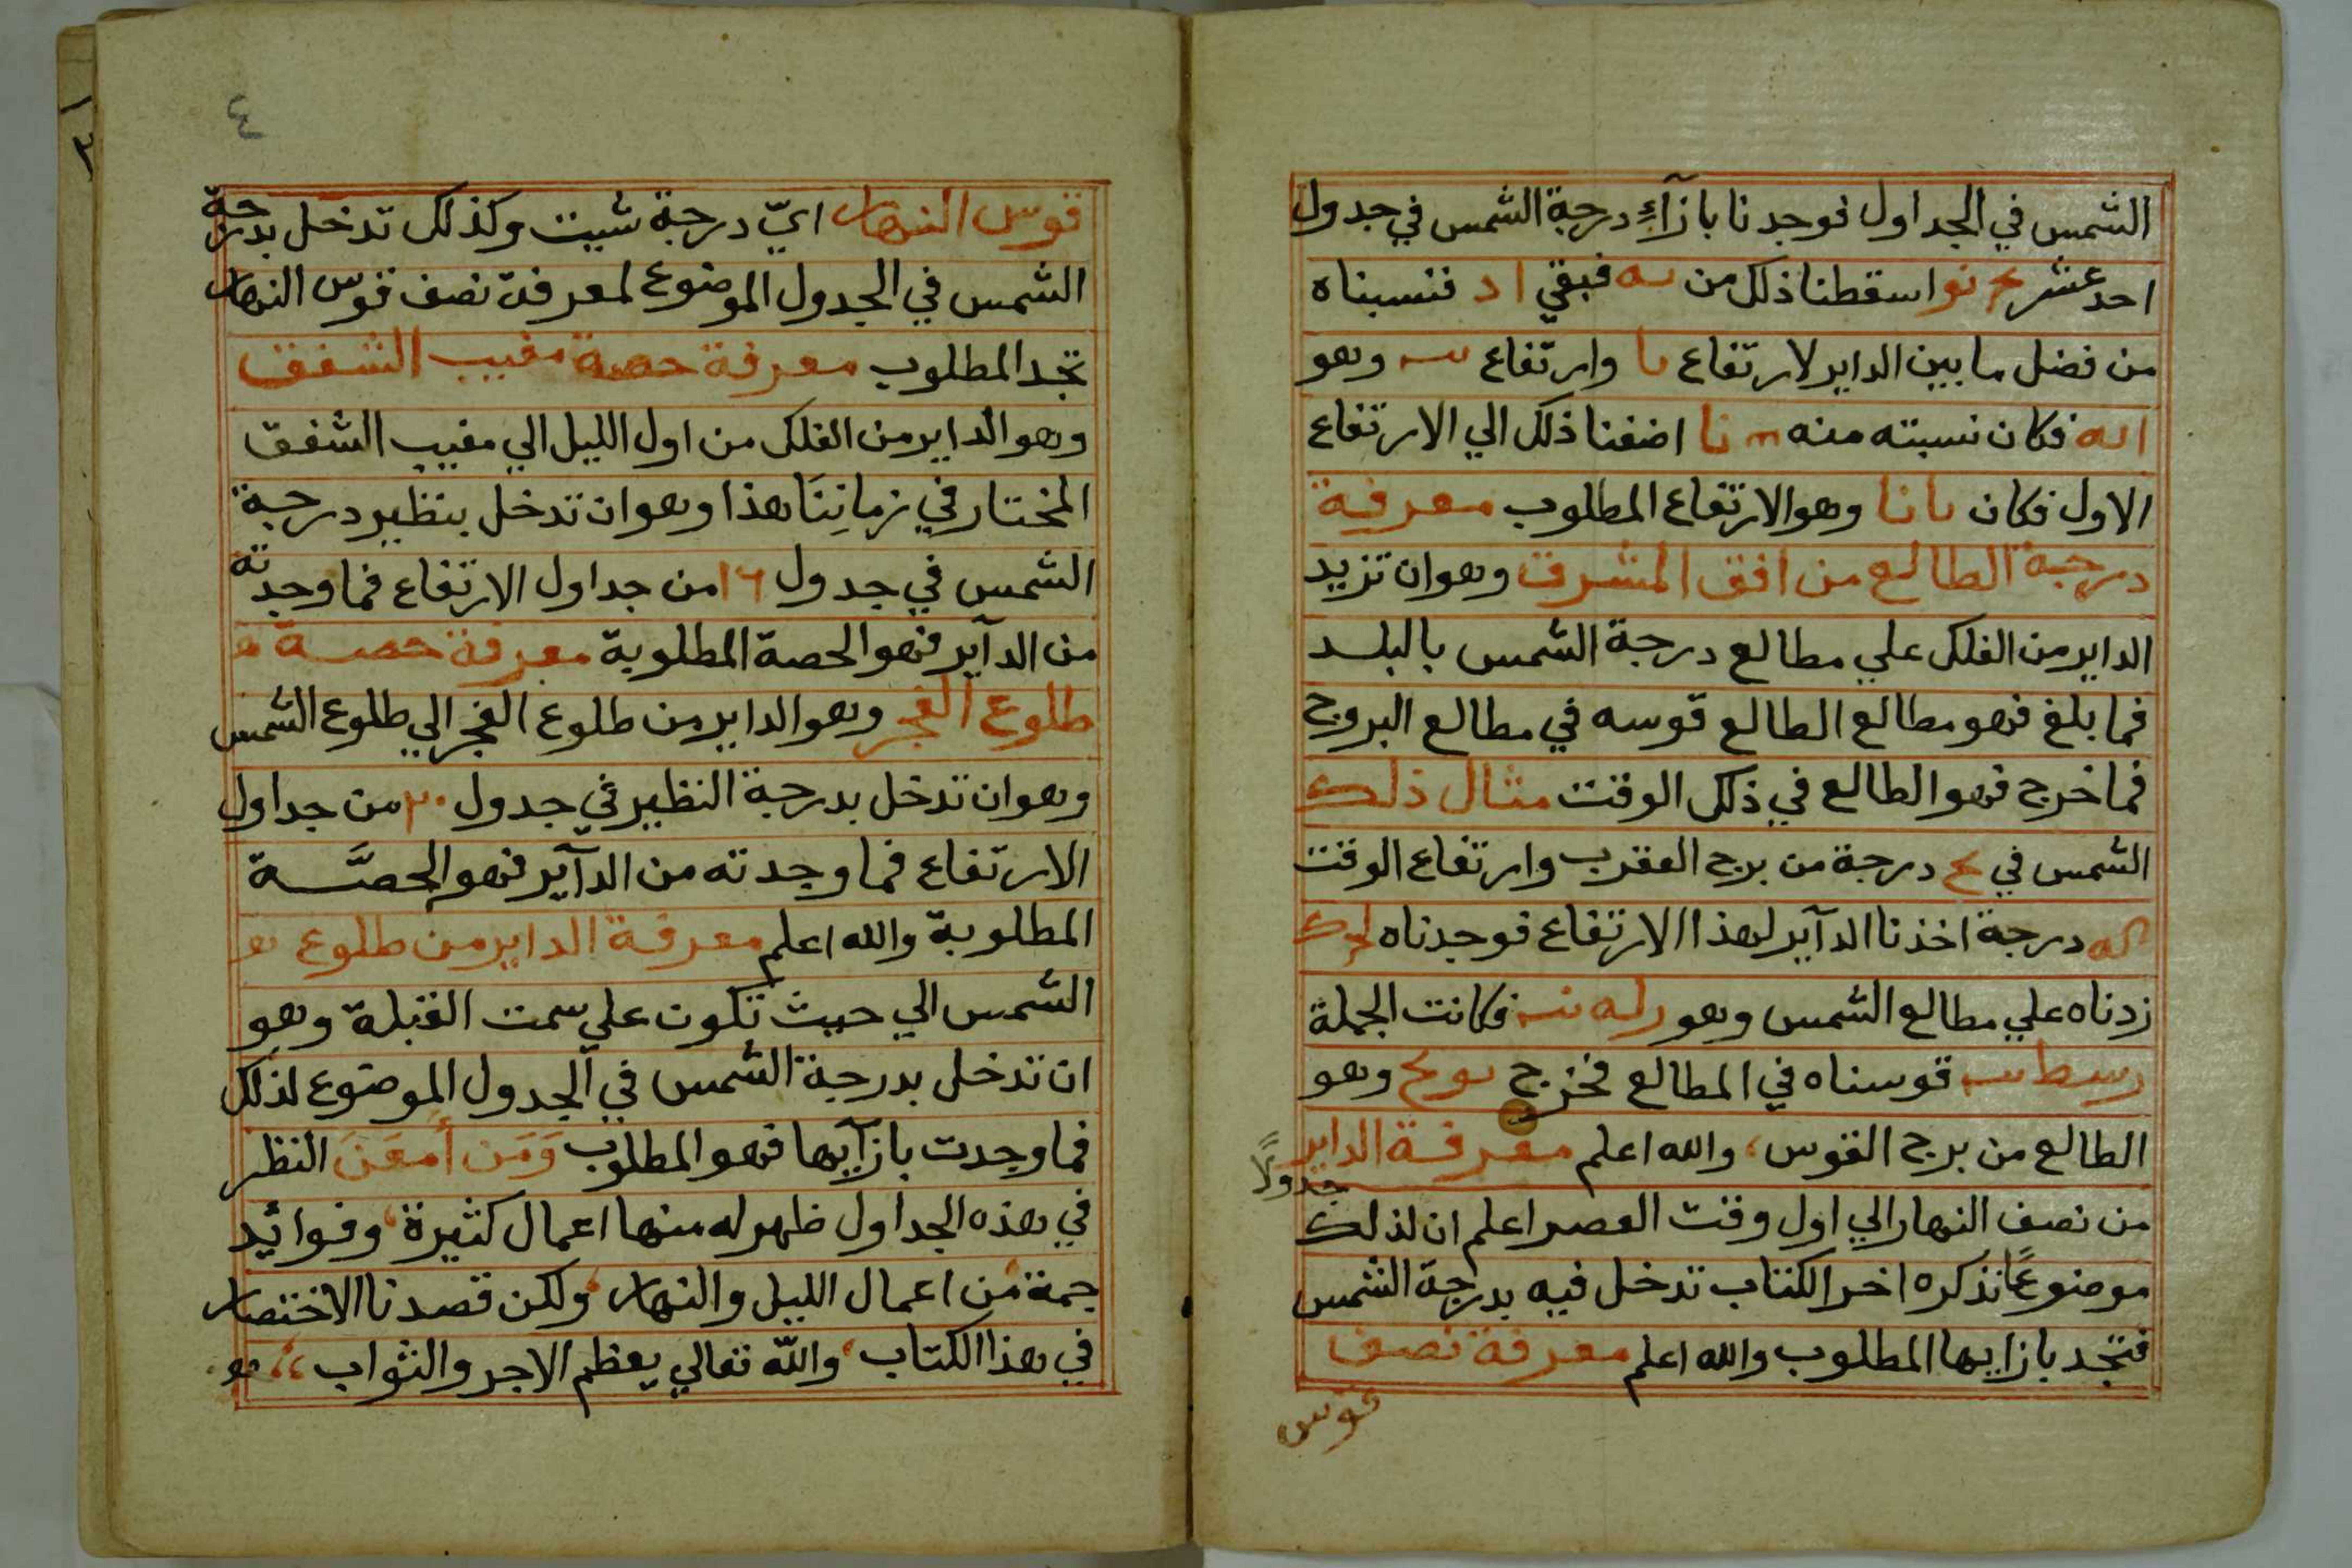 الشمس في الجداول فوجدنا بازآءِ درجة الشمس في جدول
احد عشر اسقطنا ذلك من فبقي ا د فنسبناه
من فضل ما بين الداير لارتفاع يا وارتفاع يب وهو
فكان نسبته منه نا اضفنا ذلك الي الارتفاع
الاول فكان يا نا وهو الارتفاع المطلوب معرفة
درجة الطالع من افق المشرق وهو ان تزيد
الداير من الفلك علي مطالع درجة الشمس بالبلد
فما بلغ فهو مطالع الطالع قوسه في مطالع البروج
فما خرج فهو الطالع في ذلك الوقت مثال ذلك
الشمس في ح درجة من برج العقرب وارتفاع الوقت
كه درجة اخذنا الدآير لهذا الارتفاع فوجدناه
زدناه علي مطالع الشمس وهو فكانت الجملة
قوسناه في المطالع فخرج وهو
الطالع من برج القوس، والله اعلم معرفة الداير
من نصف النهار الي اول وقت العصر اعلم ان لذلك
جدولًا
موضوعًا نذكره اخر الكتاب تدخل فيه بدرجة الشمس
فتجد بازايها المطلوب والله اعلم معرفة نصف
قوس
٤
قوس النهار ايّ درجة شيت وكذلك تدخل بدرجة
الشمس في الجدول الموضوع لمعرفة نصف قوس النهار
تجد المطلوب معرفة حصة مغيب الشفق
وهو الداير من الفلك من اول الليل الي مغيب الشفق
المختار في زمانِنَا هذا وهو ان تدخل بنظير درجة
الشمس في جدول ١٦ من جداول الارتفاع فما وجدته
من الدآير فهو الحصة المطلوبة معرفة حصة
طلوع الفجر وهو الداير من طلوع الفجر الي طلوع الشمس
وهو ان تدخل بدرجة النظير في جدول ٢٠ من جداول
الارتفاع فما وجدته من الدآير فهو الحصَّة
المطلوبة والله اعلم معرفة الداير من طلوع
الشمس الي حيث تكون علي سمت القبلة وهو
ان تدخل بدرجة الشمس في الجدول الموضوع لذلك
فما وجدت بازآيها فهو المطلوب وَمَن أَمعَنَ النظر
في هذه الجداول ظهر له منها اعمال كثيرة، وفوائد
جمة من اعمال الليل والنهار، ولكن قصدنا الاختصار
في هذا الكتاب، والله تعالي يعظم الاجر والثواب